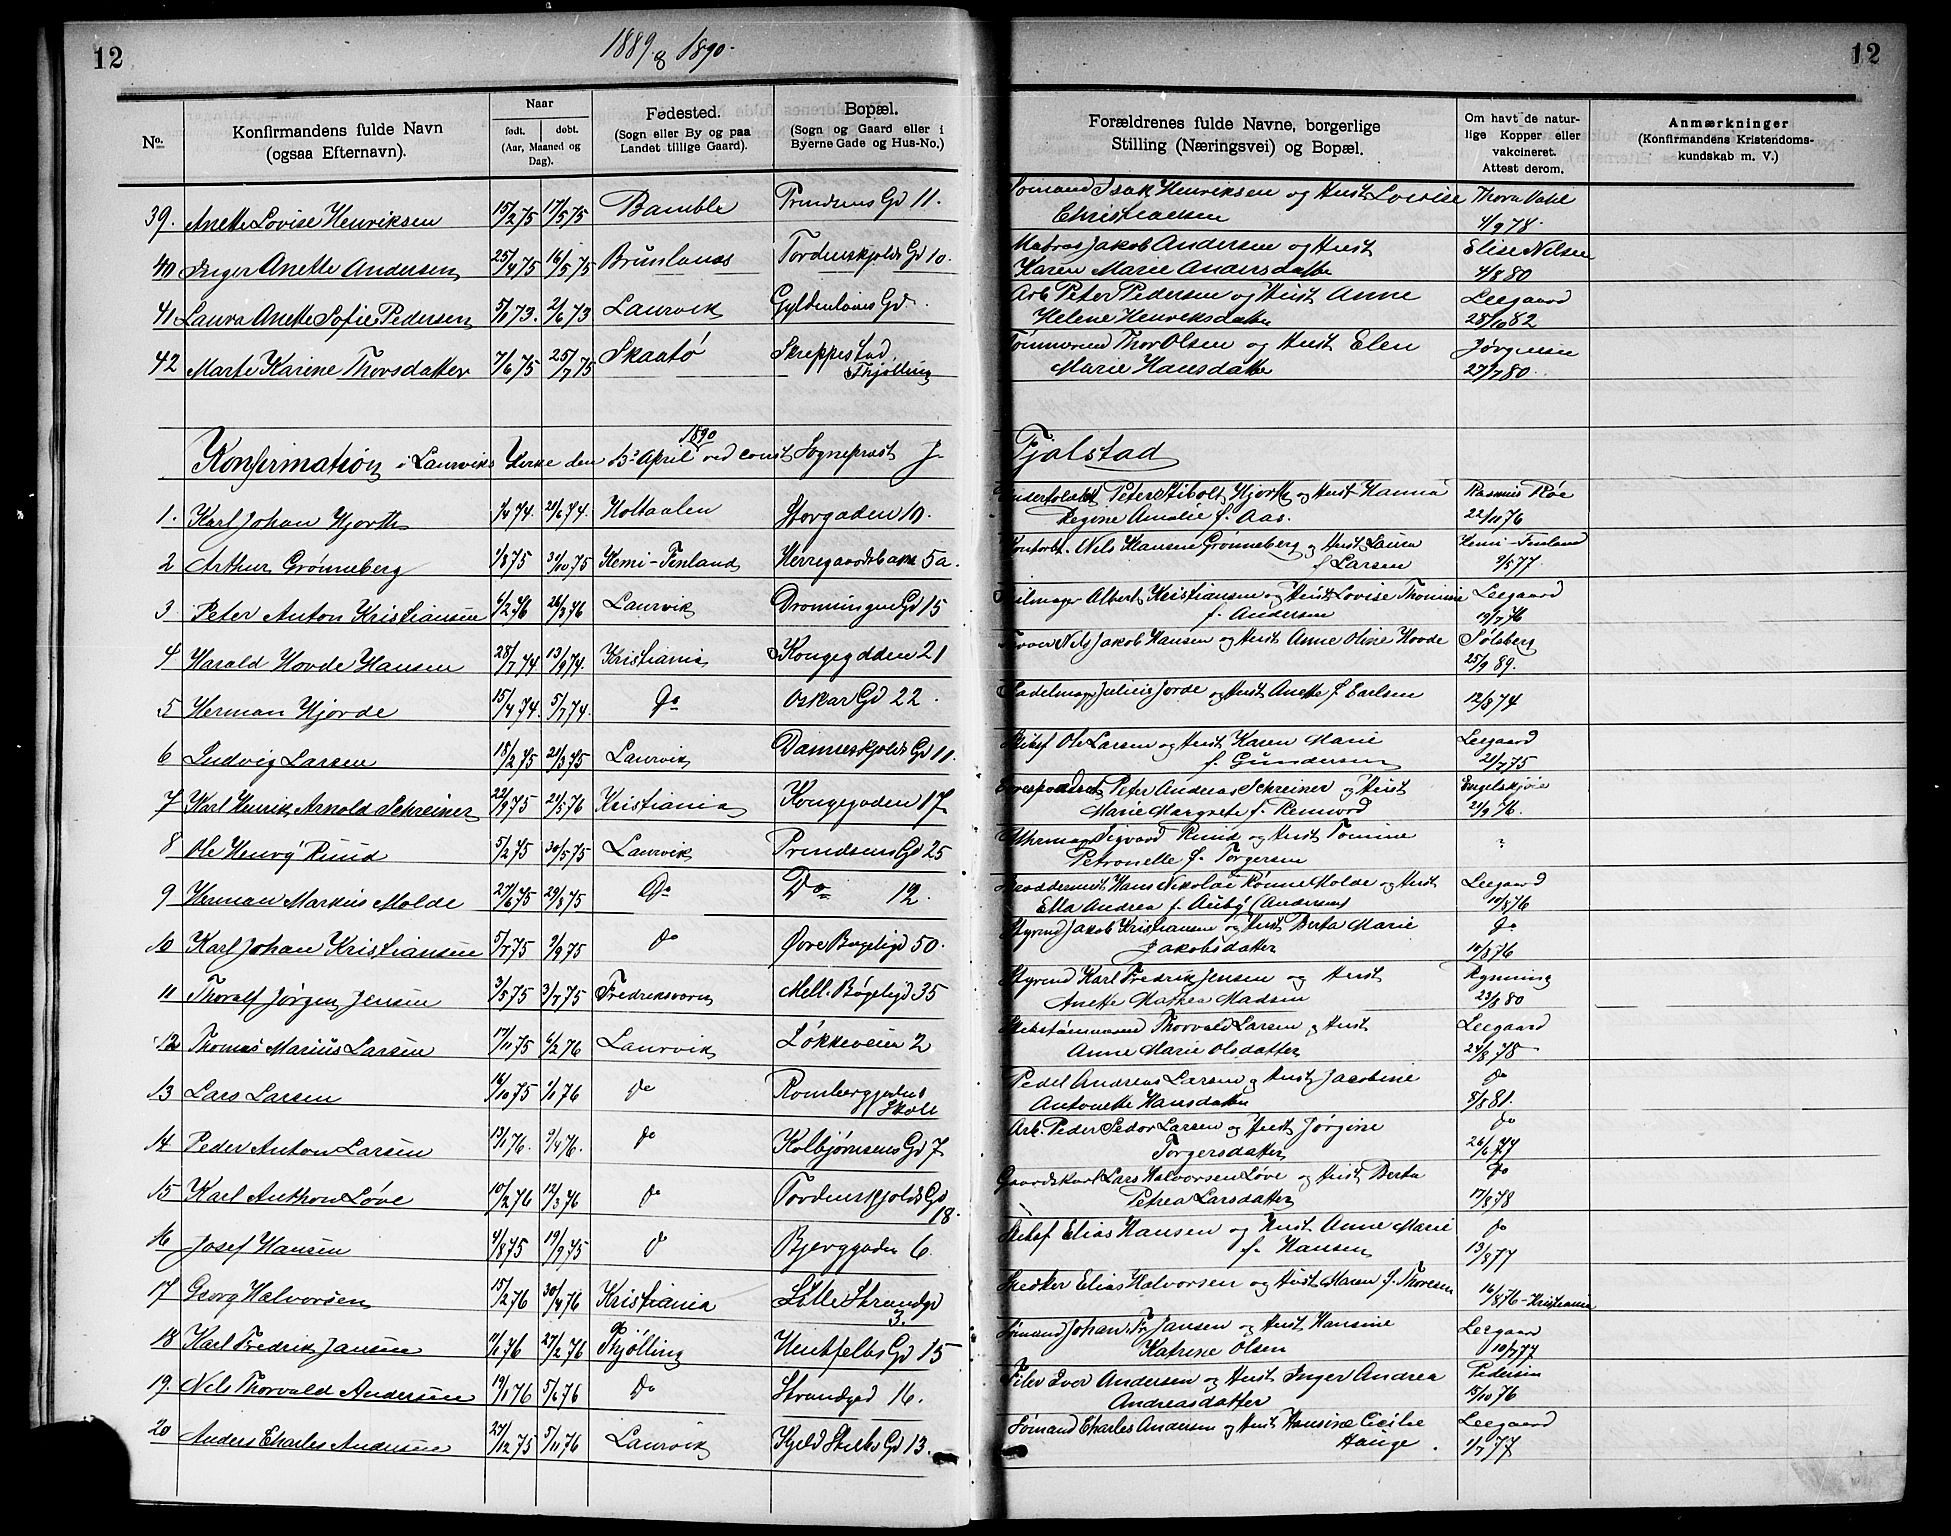 12
1889 & 1890.
12
No.
Konfirmandens fulde Navn
(ogsaa Efternavn).
Naar
født. døbt.
(Aar, Maaned og
Dag).
Fødested.
(Sogn eller By og paa
Landet tillige Gaard).
Bopæl.
(Sogn og Gaard eller i
Byerne Gade og Hus-No.)
Forældrenes fulde Navne, borgerlige
Stilling (Næringsvei) og Bopæl.
Om havt de natur-
lige Kopper eller
vakcineret.
Attest derom.
Anmærkninger
(Konfirmandens Kristendoms-
kundskab m. V.)
39. Anette Lovise Henriksen 15/2 75 17/5 75 Bamble Prindsens Gd 11. Sømand Isak Henriksen og Hust Lovise Thora Dahl
Christiansen 4/9 78.
40 Inger Anette Andersen 25/4 75 16/5 75 Brunlanæs Tordenskjolds Gd 10. Matros Jakob Andersen og Hust Elise Nilsen
Karen Marie Andersdatter 4/8 80
41 Laura Anette Sofie Pedersen 5/1 73. 2/6 73 Laurvik Gyldenløves Gd. Arb. Peter Pedersen og Hust Anne Leegaard
Helene Henriksdatter 28/10 82
42 Marte Karine Thorsdatter 7/6 75 25/7 75 Skaatø Skreppestad Tømmermd Thor Olsen og Hust Elen Jørgensen
Thjølling Marie Hansdatter 27/7 80.
1890
Konfirmation i Laurviks Kirke den 13' April ved const Sognepræst J. Fjalstad
1. Karl Johan Hjorth 74. 21/6 74. Holtaalen Storgaden 10. Peter Stibolt Hjorth og Hust Hanna Rasmus Røe
Regine Amalie f. Aas. 22/11 76
2 Arthur Grønneberg 1/8 75 31/10 75 Kemi-Finland Herregaardsbakk 5a. Kontorb. Nils Hansen Grønneberg og Hust Laura Kemi-Finland
f Larsen 9/5 77.
3 Peter Anton Kristiansen 6/2 76 26/3 76 Laurvik Dronningens Gd 15 Albert Kristiansen og Hust Lovise Thomine Leegaard
f. Andersen 19/7 76
4 Harald Hovde Hansen 28/7 74 13/9 74. Kristiania Kongegadden 21 Nils Jakob Hansen og Hust Anne Oline Hovde Sølsberg
25/9 89.
5 Herman Hjorde 15/4 74. 5/7 74. Do Oskar Gd 22. Sadelmager Julius Jorde og Hust Anette f. Carlsen 12/8 74
6 Ludvig Larsen 18/2 75 21/3 75 Laurvik Danneskjolds Gd 11. Skibsf Ole Larsen og Hust Karen Marie Leegaard
f. Gundersen 21/7 75
7 Karl Henrik Arnold Schreiner 22/9 75 21/5 76 Kristiania Kongegaden 17 Peter Andreas Schreiner og Hust Engelskjøn
Marie Margrete f. Remvord 21/9 76.
8 Ole Henry Ruud 5/2 75 30/5 75 Laurvik Prindsens Gd 25 Uhrmager Sigvard Ruud og Hust Tomine "
Petronelle f. Torgersen
9 Herman Markus Molde 27/6 75 29/8 75 Do Do 12. Hans Nikolai Rønne Molde og Hust Leegaard
Ella Andrea f. Auby (Andersen) 17/8 76
10 Karl Johan Kristiansen 5/7 75 9/9 75 do Øvre Bøgeligd 50. Styrmd Jakob Kristiansen og Hust Berta Marie Do
Jakobsdatter 10/8 76
11 Thoralf Jørgen Jensen 3/5 75 3/7 75 Fredriksværn Mell. Bøgeligd 35 Styrmd Karl Fredrik Jensen og Hust Rynning
Anette Mathea Madsen 23/8 80
12 Thomas Marius Larsen 17/11 75 6/2 76 Laurvik Løkkeveien 2 Skibstømmermd Thorvald Larsen og Hust Leegaard
Anne Marie Olsdatter 24/8 78
13 Lars Larsen 16/10 75 1/1 76 do Rombergjordets Pedel Andreas Larsen og Hust Jacobine do
Skole Antonette Hansdatter 8/8 81.
14 Peder Anton Larsen 13/1 76. 9/4 76. do Kolbjørnsens Gd 7 Arb. Peder Larsen og Hust Jørgine do
Torgersdatter 26/6 77
15 Karl Anthon Løve 10/2 76 12/3 76 do Tordenskjolds Gd Gaardskarl Lars Halvorsen Løve og Hust Berta Do
18. Petrea Larsdatter 17/8 78
16 Josef Hansen 4/8 75 19/9 75 do Bjerggaden 6. Skibsf Elias Hansen og Hust Anne Marie do
f. Hansen 13/8 77
17 Georg Halvorsen 15/2 76 30/4 76 Kristiania Lille Strandgd Snedker Elias Halvorsen og Hust Maren f. Thoresen 16/8 76-Kristiania
3.
18 Karl Fredrik Jansen 11/1 76 27/2 76 Thjølling Huitfelds Gd 15 Sømand Johan Fr Jansen og Hust Hansine Leegaard
Katrine Olsen 10/7 77
19. Nils Thorvald Andersen 19/1 76 5/6 76 Do Strandgd 16. Filer Iver Andersen og Hust Inger Andrea Pedersen
Andreasdatter 15/10 76
20 Anders Charles Andersen 27/12 75 5/11 76 Laurvik Kjeld Stubs Gd 13. Sømand Charles Andersen og Hust Hansine Cicilie Leegaard
Hauge. 1/7 77